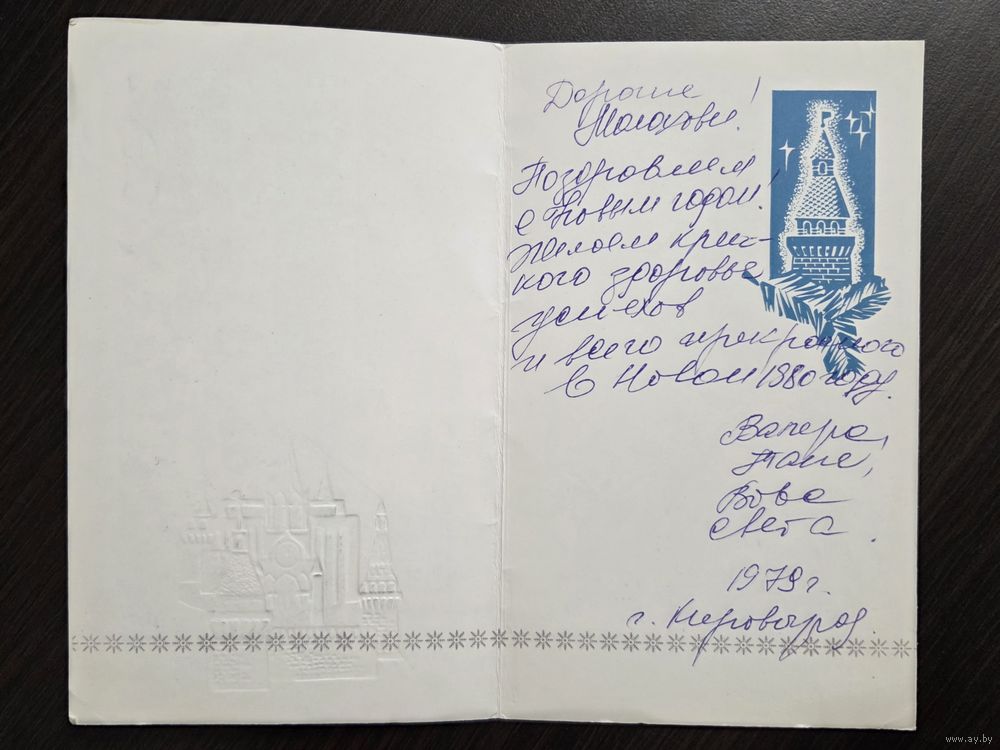 Дорогие
Малаховы!
Поздравляем
с Новым годом!
Желаем креп-
кого здоровья
успехов
и всего прекрасного
в Новом 1980 году.
Валера,
Таня,
Вова
Света.
1979 г.
г. Кировоград.
www.ay.by